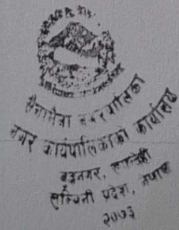 सैनामैना नगरपालिका
नगर कार्यपालिकाको कार्यालय
लुम्बिनी प्रदेश, नेपाल
२०७३